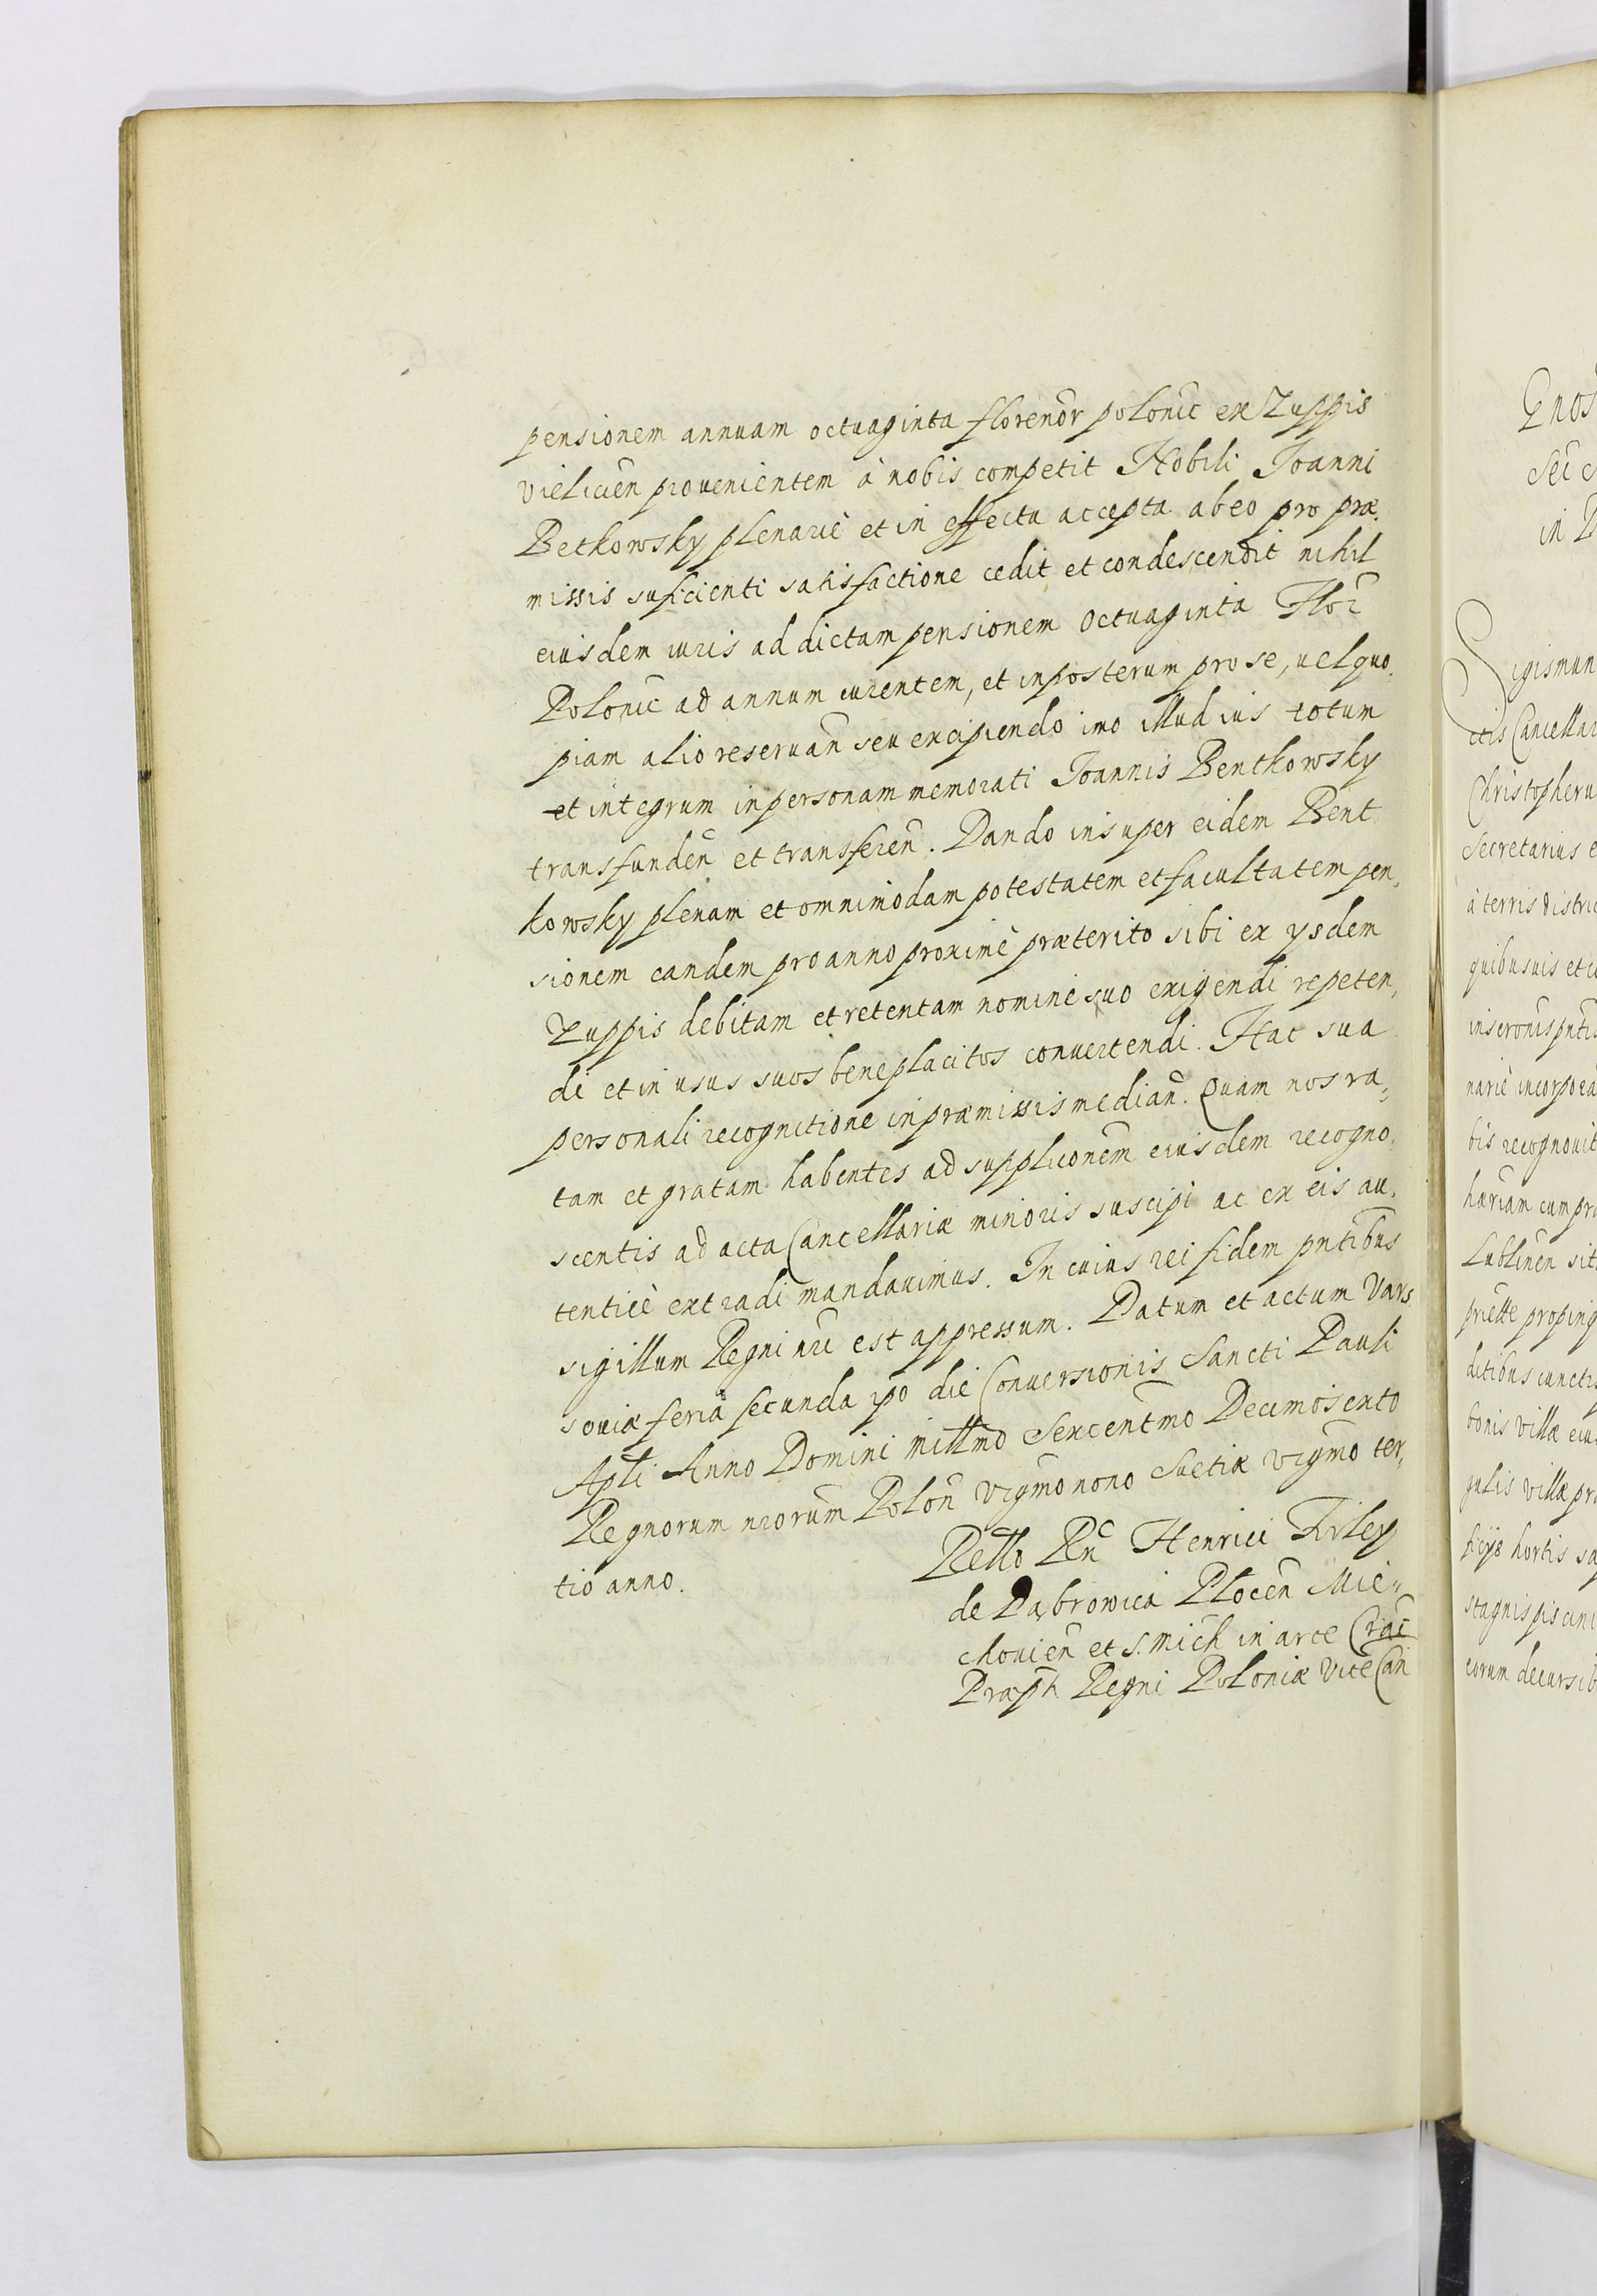 pensionem annuam octuaginta florenōr poloniē ex Zuppis
vielicēn prouenientem à nobis competit Nobili Joanni
Betkowsky plenariè et in effectu accepta ab eo pro præ,
missis suficienti satisfactione cedit et condescendit nihil
eiusdem iuris ad dictam pensionem octuaginta Flor̄
Polonic̄ ad annum curentem, et inposterum pro se, uel quo,
piam alio reseruan̄ seu excipiendo imo illud ius totum
et integrum in personam memorati Joannis Bentkowsky
transfundēn et transferēn. Dando insuper eidem Bent,
kowsky plenam et omnimodam potestatem et facultatem pen,
sionem eandem pro anno proximè præterito sibi ex ysdem
Zuppis debitam et retentam nominè suo exigendi repeten,
di et in usus suos beneplacitos conuertendi. Hac sua
personali recognitione in præmissis median̄. Quam nos ra,
tam et gratam habentes ad supplicōnem eiusdem recogno,
scentis ad acta Cancellariæ minoris suscipi ac ex eis au,
tenticè extradi mandauimus. In cuius rei fidem pn̄tibus
sigillum Regni nr̄i est appressum. Datum et actum Vars,
souiæ feria secunda ip̄o die Conuersionis Sancti Pauli
Apl̄i Anno Domini mill̄mo Sexcent̄mo Decimosexto
Regnorum nr̄orum Polon̄ vigm̄o nono Suetiæ vigm̄o ter,
tio anno.
Rell̄o Rn̄ Henrici Firley
de Dąbrowica Plocēn Mie,
chouiēn et S. Mich̄ in arce Crac̄
Præp̄ti Regni Poloniæ Vice Can̄
Sigismun
Christopheru
Secretarius e
à terris distric
quibusuis et
bis recognouit
hæriam cum pr
Lublinēn sit
ditibus cunctis
bonis villæ eius
gulis villæ pr
ficijs hortis sa
stagnis piscini
eorum decursib